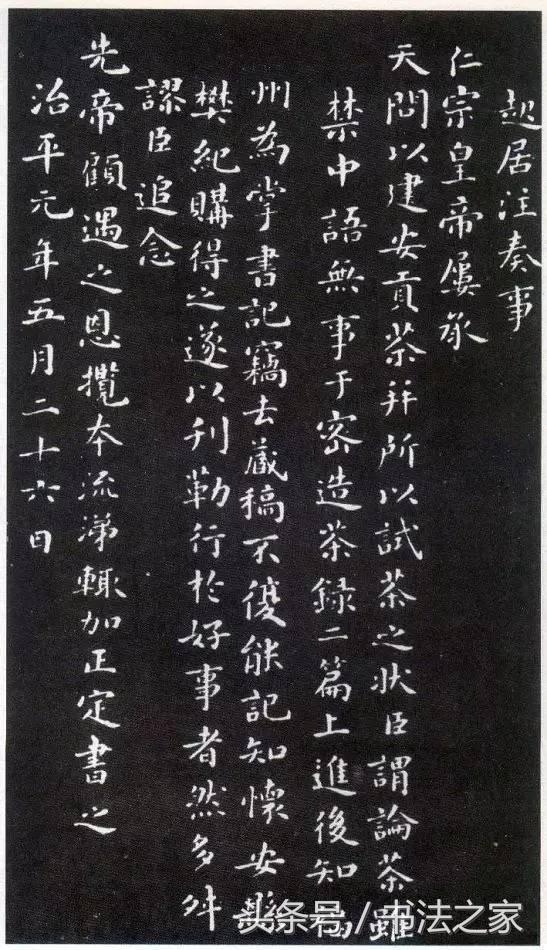 起居注奏事
仁宗皇帝屢承
天問以建安貢茶并所以試茶之狀臣謂論茶雖
禁中語無事于密造茶録二篇上進後知
州為掌書記竊去藏稿不復能記知懷安縣
樊紀購得之遂以刊勒行於好事者然多舛
謬臣追念
先帝顧遇之恩攬本流涕輒加正定書之
治平元年五月二十六日
头条号 / 书法之家